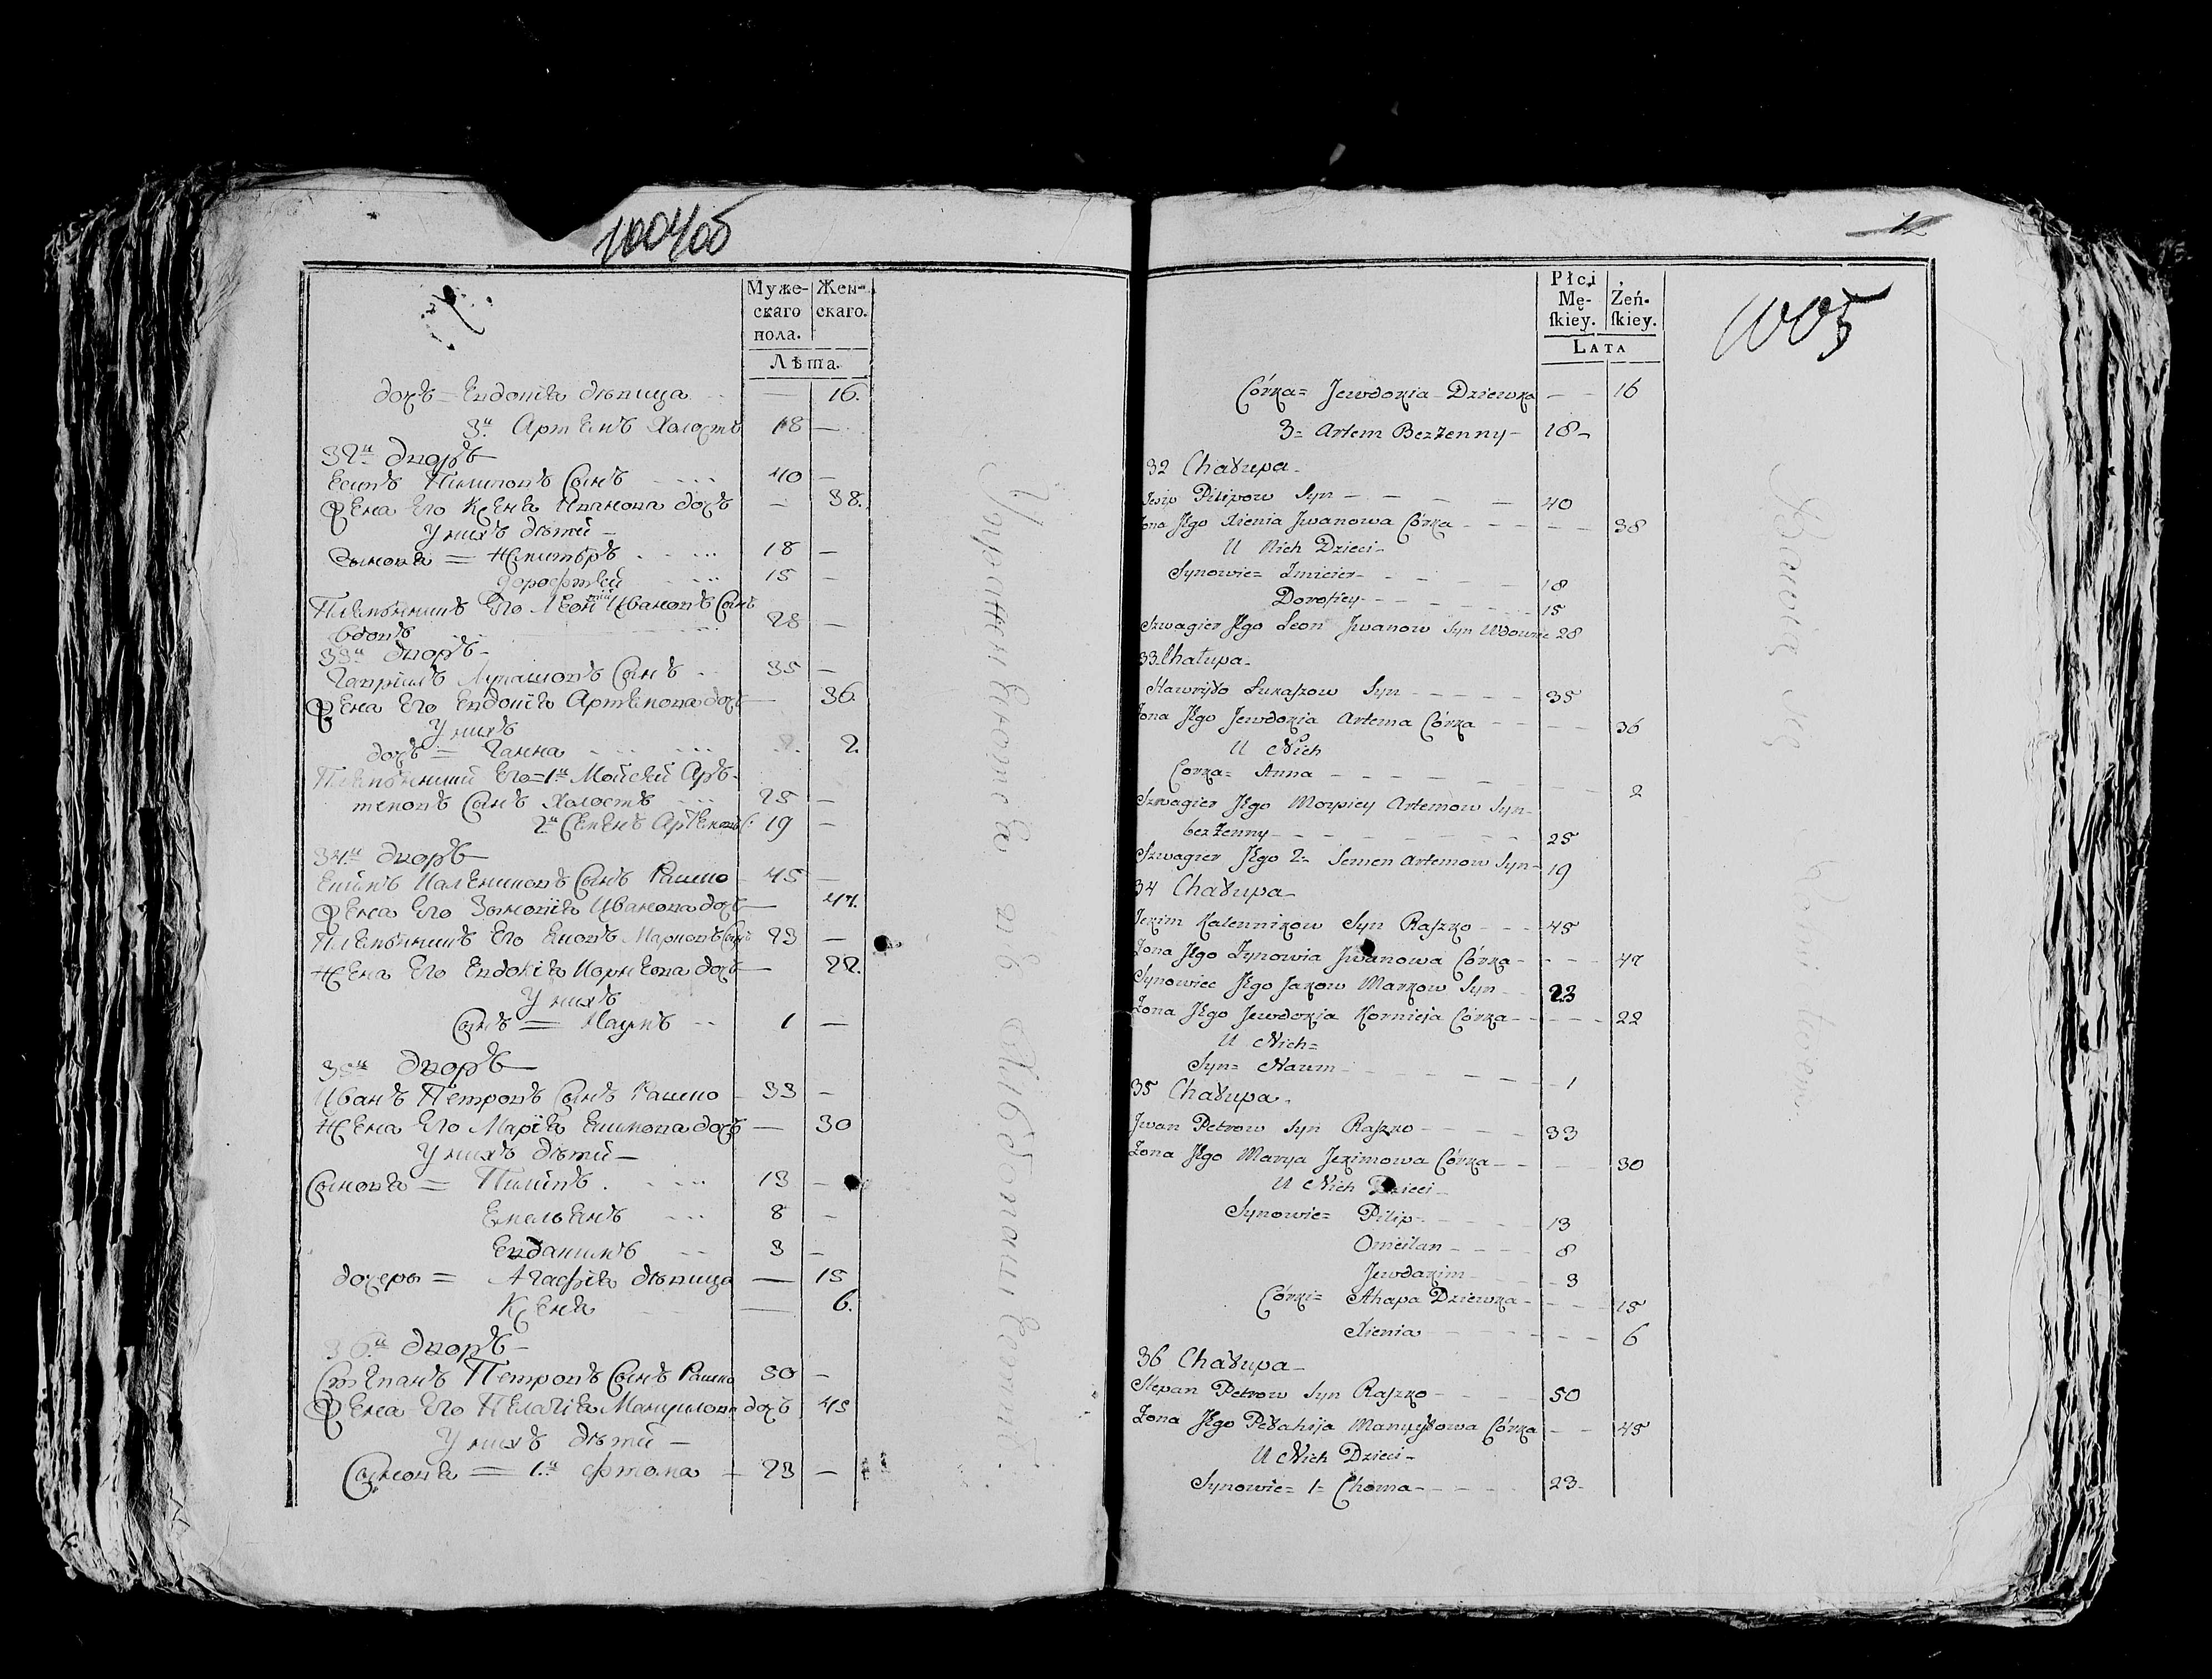 1004об
Муже-
скаго
пола.
Жен-
скаго.
Лѣта.
дочь = Евдокія дѣвица 16.
3й Артемъ Холостъ 18 —
32й дворъ
Есипъ Пилиповъ Сынъ 40 —
Жена Его Ксенія Иванова дочь — 38.
У нихъ дѣти —
Сыновя = Змитръ 18 —
Дорофтей 15 —
Племянникъ Его Леонтий Ивановъ Сынъ
вдовъ 28 —
33й дворъ —
Гаврилъ Лукашовъ Сынъ 35 —
Жена Его Евдокія Артемова дочь — 36.
У нихъ
дочь = Ганна 2.
Племянники Его = 1й Мойсей Арѣ-
темовъ Сынъ Холостъ 25 —
2й Семенъ Артемовъ С: 19 —
34й дворъ
Екимъ Калениковъ Сынъ Рашко 45 —
Жена Его Зыновія Иванова дочь — 47.
Племянникъ Его Яковъ Марковъ Сынъ 23 —
Жена Его Евдокія Корнѣева дочь — 22.
У нихъ
Сынъ = Наумъ 1 —
35й дворъ
Иванъ Петровъ Сынъ Рашко 33 —
Жена Его Марія Екимова дочь — 30
У нихъ дѣти —
Сыновя = Пилипъ 13 —
Емельянъ 8 —
Евдакимъ 3 —
дочеры = Агафія дѣвица — 15
Ксенія — 6.
36й дворъ —
Степанъ Петровъ Сынъ Рашко 50 —
Жена Его Пелагія Мануилова дочь 45
У нихъ дѣти —
Сыновя = 1й Фтома 23 —
12
1005
Płci
Mę-
ſkiey.
Żeń-
ſkiey.
LATA
Córka = Jewdokia Dziewka — — 16
3 = Artem Bezżenny — 18 —
32 Chałupa —
Pilipow Syn — 40
Żona Jego Xienia Jwanowa Córka — 38
U Nich Dzieci —
Synowie = Zmicier — 18
Dorofiey — 15
Szwagier Jego Leon Jwanow Syn Wdowiec 28
33 Chałupa —
Hawryło Łukaszow Syn — 35
Żona Jego Jewdokia Artema Córka — 36
U Nich
Corka = Anna — 2
Szwagier Jego Moysiey Artemow Syn —
bezżenny — 25
Szwagier Jego 2 = Semen Artemow Syn — 19
34 Chałupa —
Jekim Kalennikow Syn Raszko — 45
Żona Jego Zynowia Jwanowa Córka — 47
Synowiec Jego Jakow Markow Syn 23
Żona Jego Jewdokja Kornieja Córka — 22
U Nich =
Syn = Naum — 1
35 Chałupa —
Jwan Petrow Syn Raszko — 33
Żona Jego Marya Jekimowa Córka — 30
U Nich Dzieci —
Synowie = Pilip — 13
Omielan — 8
Jewdakim — 3
Córki = Ahapa Dziewka — 15
Xienia — 6
36 Chałupa —
Stepan Petrow Syn Raszko — 50
Żona Jego Pełahija Manuyłowa Córka — 45
U Nich Dzieci —
Synowie = 1 = Choma — 23 —